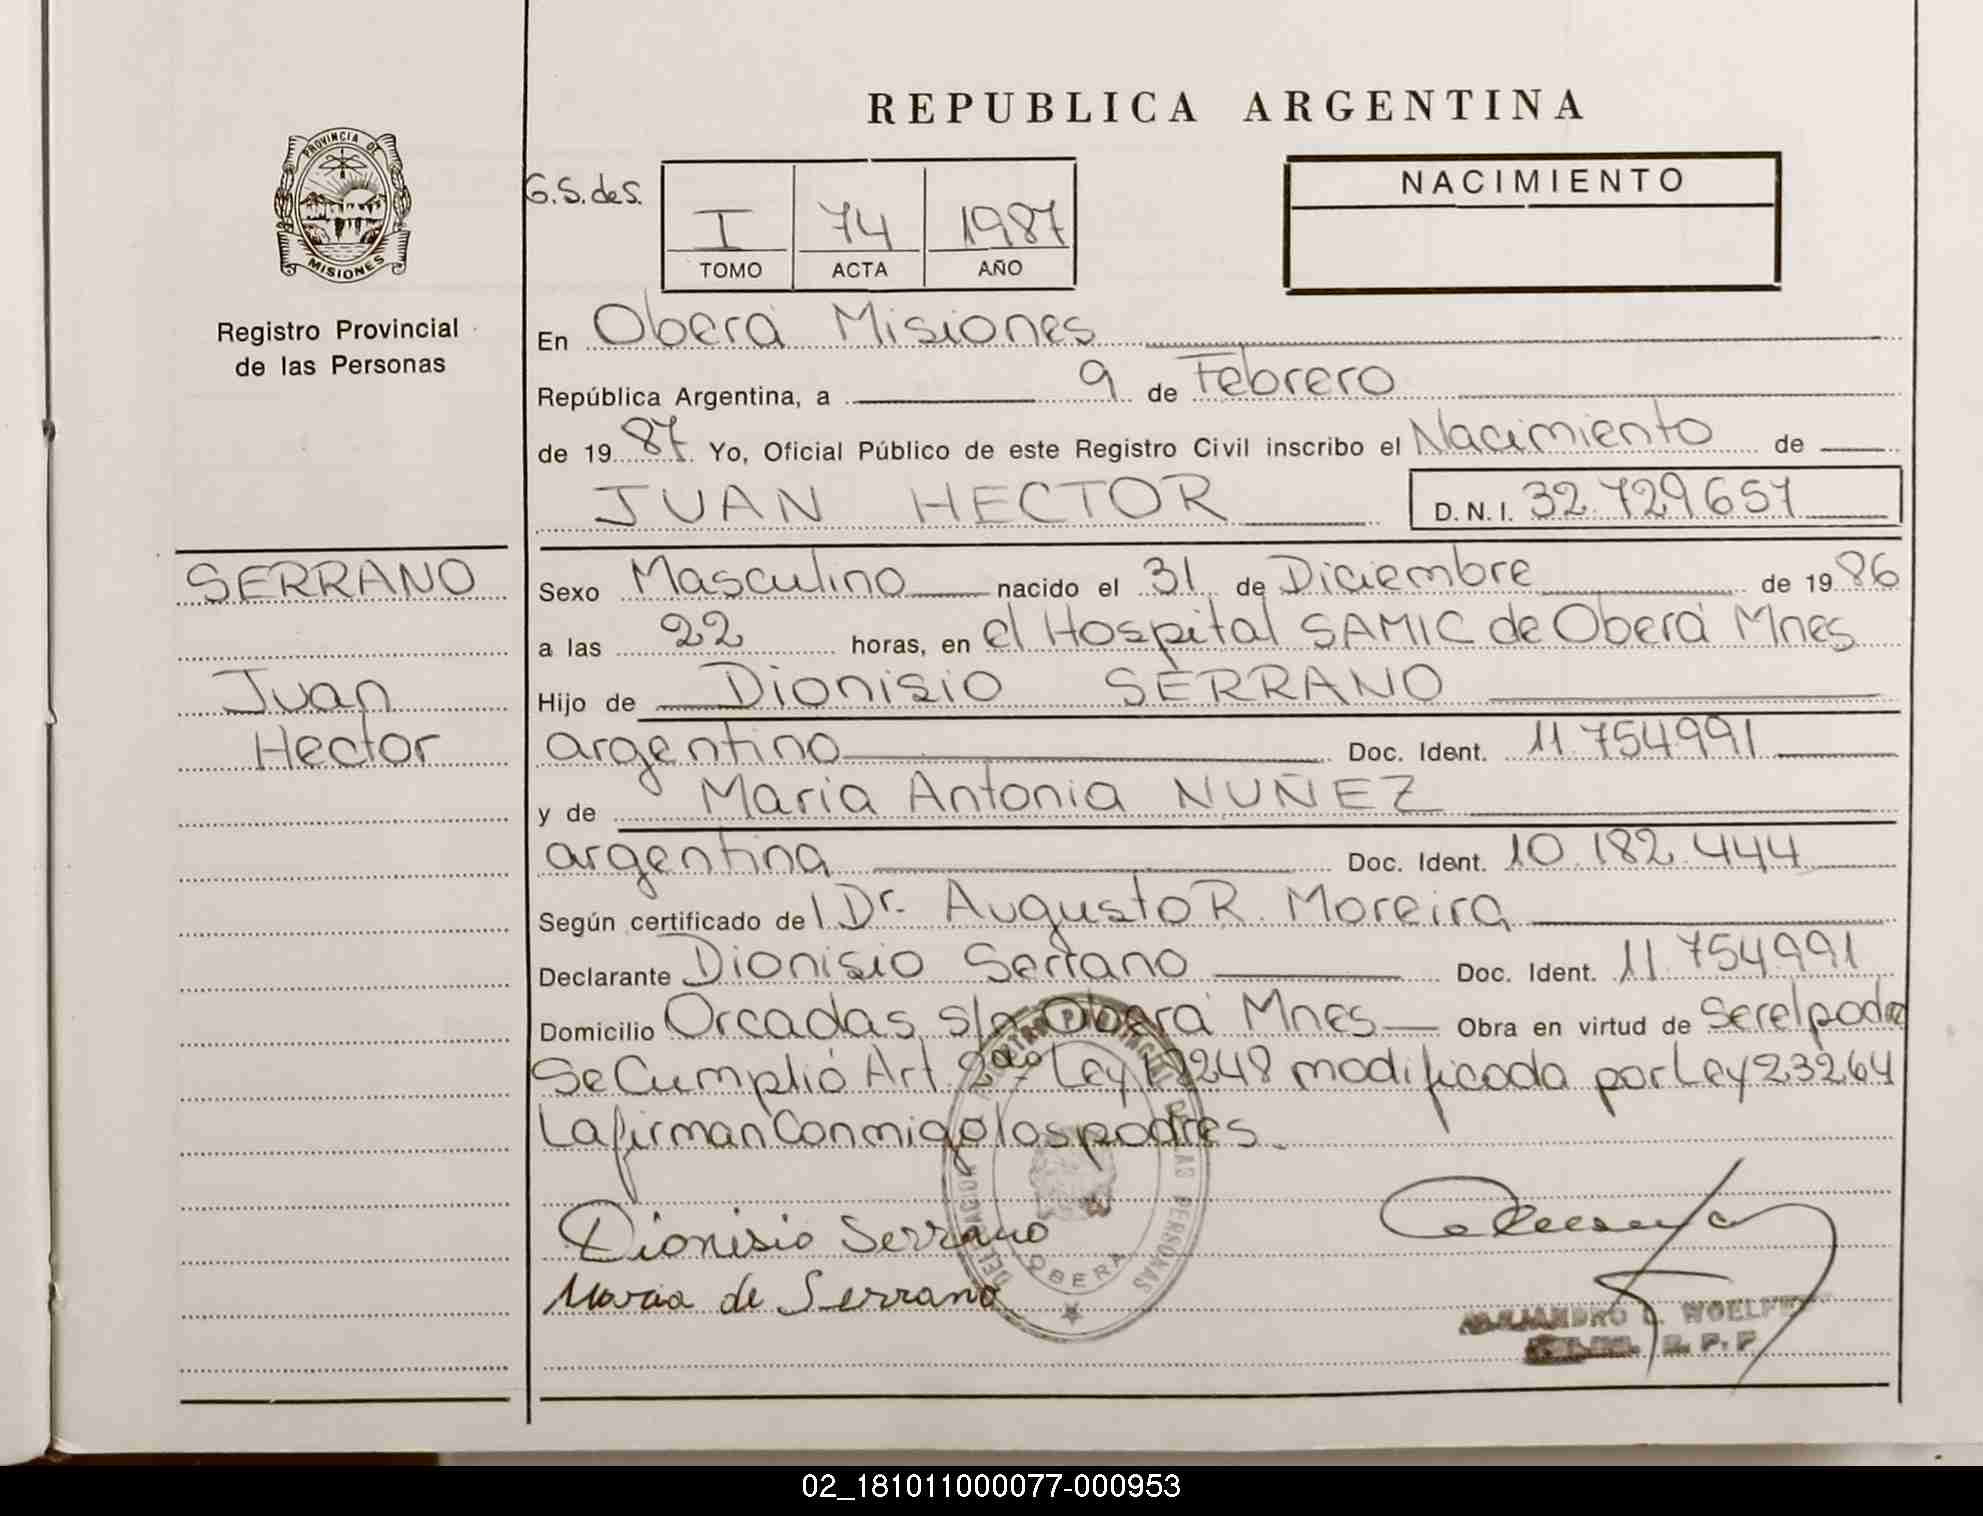 REPUBLICA ARGENTINA
PROVINCIA DE
MISIONES
Registro Provincial
de las Personas
G.S.deS.
I 74 1987
TOMO ACTA AÑO
NACIMIENTO
En Oberá Misiones
República Argentina, a 9 de Febrero
de 1987 Yo, Oficial Público de este Registro Civil inscribo el Nacimiento de
JUAN HECTOR D.N.I. 32.729657
SERRANO
Juan
Hector
Sexo Masculino nacido el 31 de Diciembre de 1986
a las 22 horas, en el Hospital SAMIC de Oberá Mnes
Hijo de Dionisio SERRANO
argentino Doc. Ident. 11.754991
y de Maria Antonia NUÑEZ
argentina Doc. Ident. 10.182.444
Según certificado del Dr. Augusto R. Moreira
Declarante Dionisio Serrano Doc. Ident. 11.754991
Domicilio Orcadas s/n Oberá Mnes Obra en virtud de Ser el padre
Se Cumplió Art. 2do Ley 17248 modificada por Ley 23264
La firman Conmigo los padres.
Dionisio Serrano
Maria de Serrano
DELEGACION
DE LAS PERSONAS
OBERA
ALEJANDRO
02_181011000077-000953